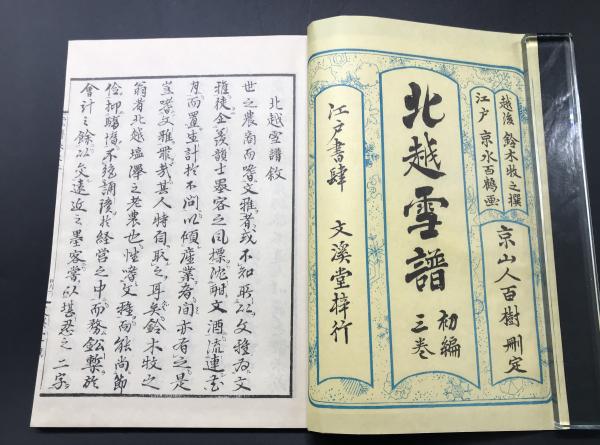 越後 鈴木牧之撰
江戸 京水百鶴画
京山人百樹刪定
北越雪譜 初編 三巻
江戸書肆 文溪堂梓行
北越雪譜敘
世之農商而嗜文雅者或不知所以文雅為文
雅徒企羨韻士墨客之風標沈酣文酒流連花
月而置生計於不問以傾産業者間亦有之是
豈嗜文雅罪哉其人特自取之耳矣鈴木牧之
翁者北越塩澤之老農也性嗜文雅而能尚節
倹抑驕惰不
於経営之中而務鉛槧於
會計之餘以交遠近之墨客常以堪忍之二字